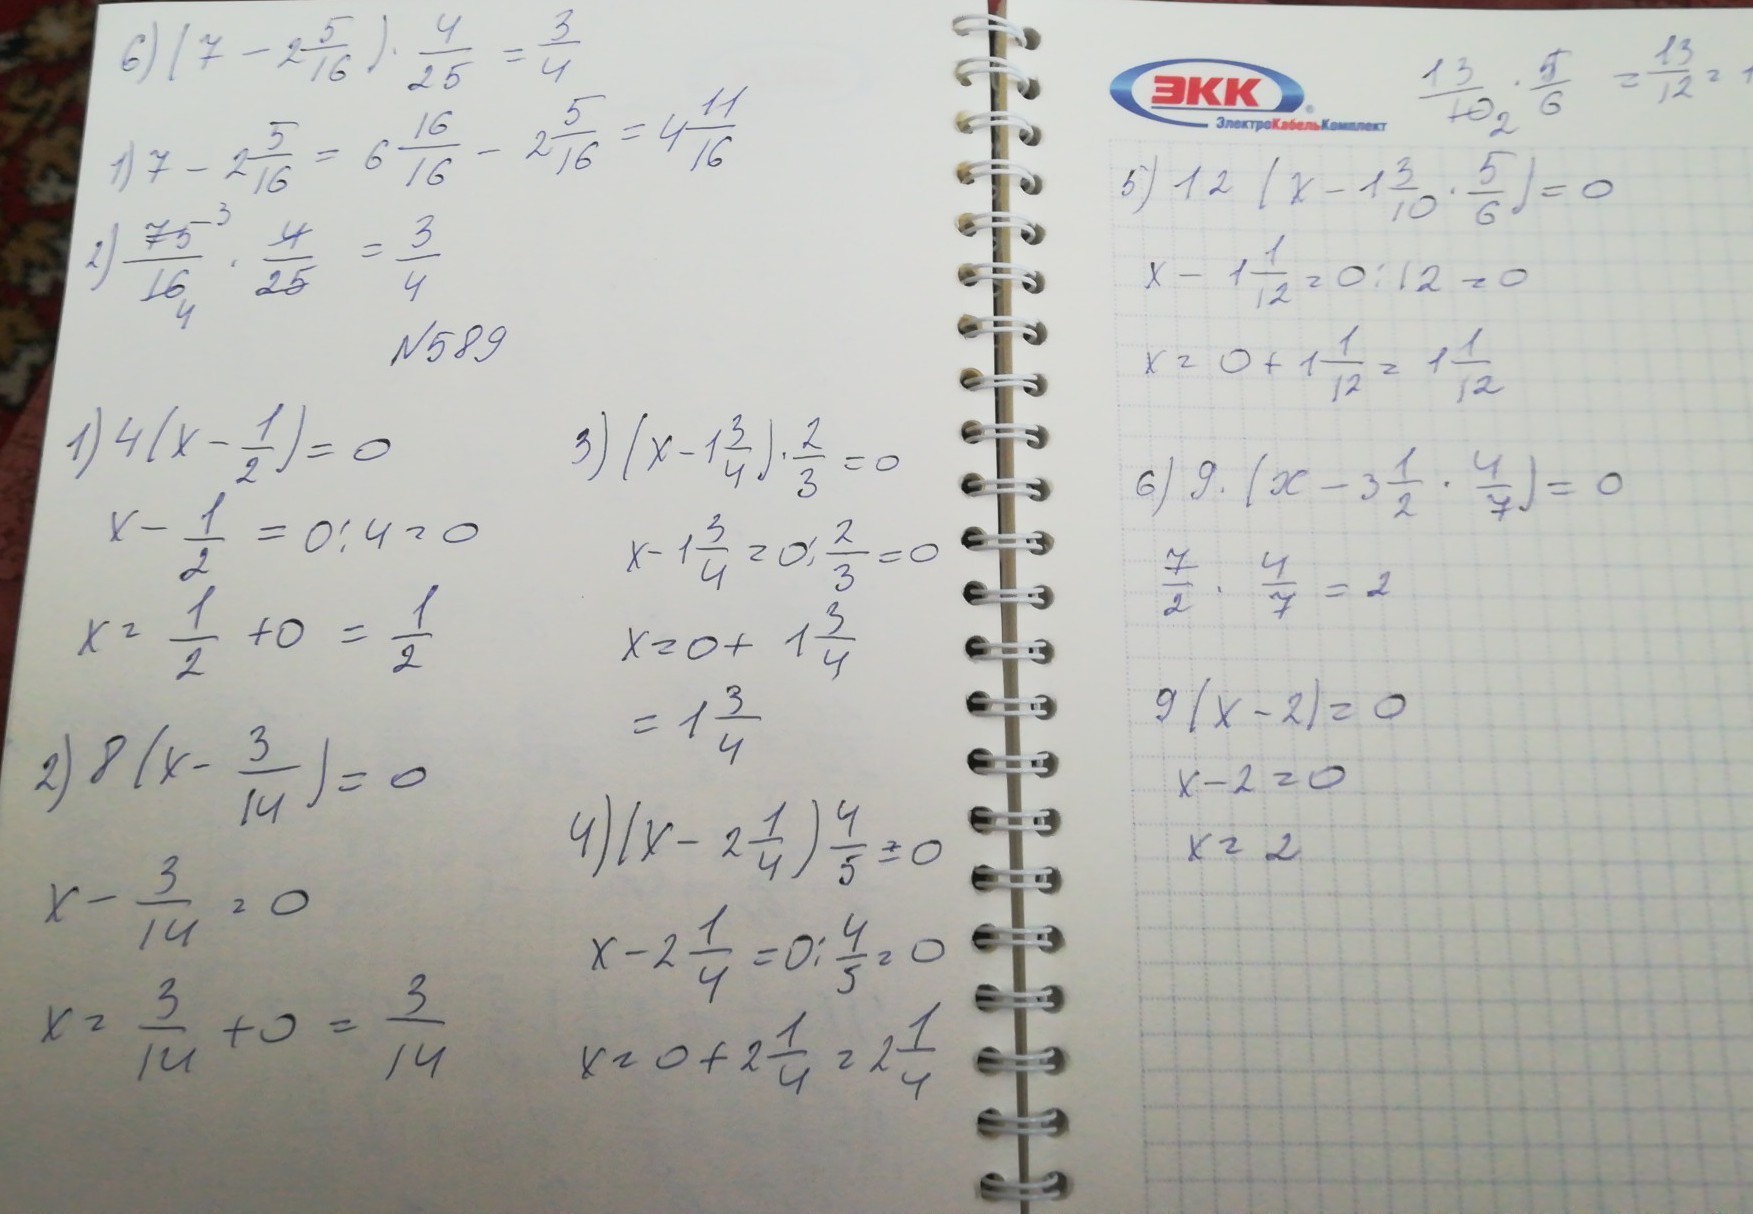 6) (7 - 2 5/16) · 4/25 = 3/4
1) 7 - 2 5/16 = 6 16/16 - 2 5/16 = 4 11/16
2) 75/16 · 4/25 = 3/4
3
4
N589
1) 4(x - 1/2) = 0
x - 1/2 = 0 : 4 = 0
x = 1/2 + 0 = 1/2
2) 8(x - 3/14) = 0
x - 3/14 = 0
x = 3/14 + 0 = 3/14
3) (x - 1 3/4) · 2/3 = 0
x - 1 3/4 = 0 : 2/3 = 0
x = 0 + 1 3/4
= 1 3/4
4) (x - 2 1/4) 4/5 = 0
x - 2 1/4 = 0 : 4/5 = 0
x = 0 + 2 1/4 = 2 1/4
ЭКК
ЭлектроКабельКомплект
13/10 · 5/6 = 13/12 = 1
2
5) 12 (x - 1 3/10 · 5/6) = 0
x - 1 1/12 = 0 : 12 = 0
x = 0 + 1 1/12 = 1 1/12
6) 9 · (x - 3 1/2 · 4/7) = 0
7/2 · 4/7 = 2
9(x - 2) = 0
x - 2 = 0
x = 2